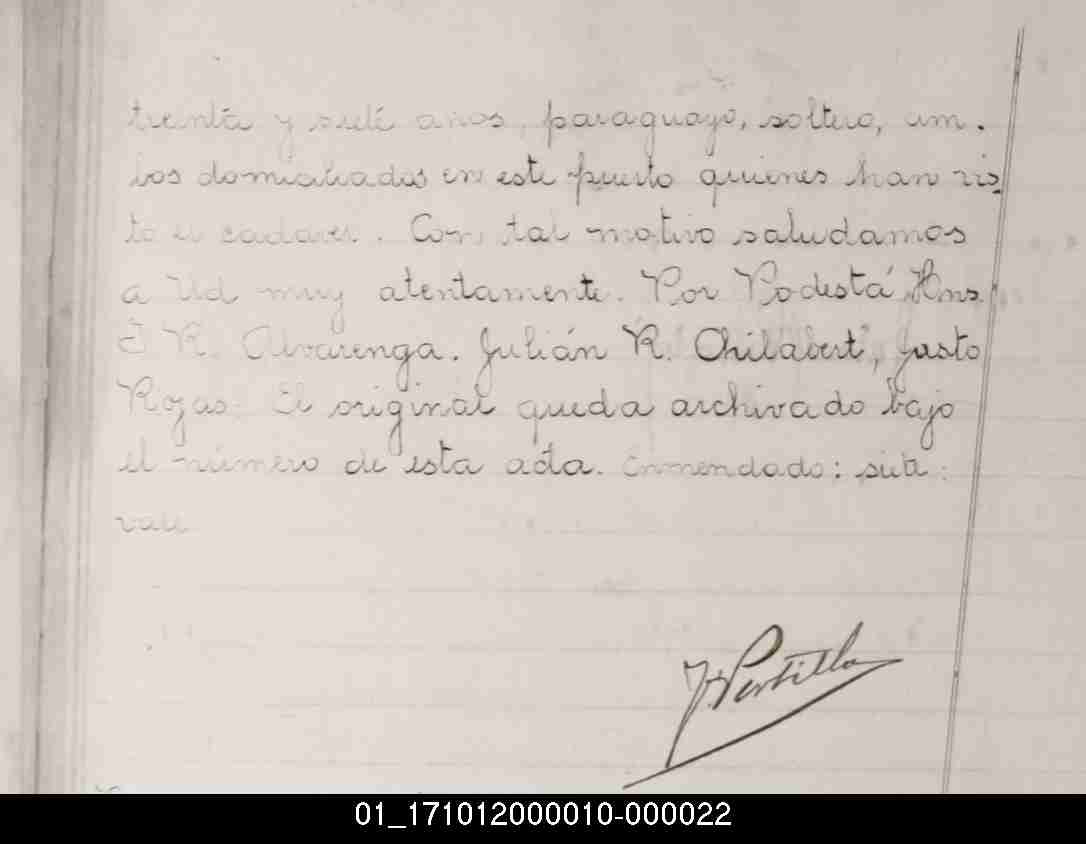 treinta y siete años, paraguayo, soltero, am.
bos domiciliados en este puerto quienes han vis
to el cadaver. Con tal motivo saludamos
a Ud muy atentamente. Por Podestá Hns.
R. Alvarenga. Julián R. Chilabert, Justo
Rojas. El original queda archivado bajo
el número de esta acta. Enmendado: siete:
vale
J. Portillo
01_171012000010-000022